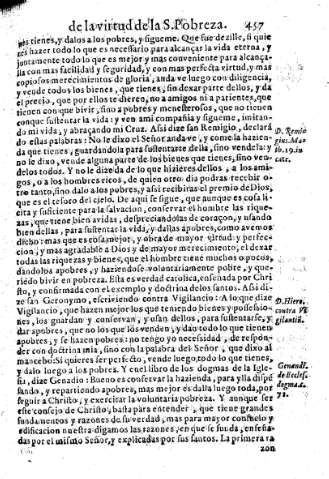 de la virtud de la S. Pobreza. 457
nes tienes, y dalos a los pobres, y sigueme. Que fue dezille, si quie
res hazer todo lo que es necessario para alcançar la vida eterna, y
juntamente todo lo que es mejor y mas conveniente para alcançar-
lla con mas facilidad y seguridad, y con mas perfecta virtud, y mas
copiosos merecimientos de gloria, anda ve luego con diligencia,
y vende todos los bienes, que tienes, sin dexar parte dellos, y da
el precio, que por ellos te dieren, no a amigos ni a parientes, que
tienen con que bivir, sino a pobres y menesterosos, que no tienen
conque sustentar la vida: y ven ami compañia y sigueme, imitan-
do mi vida, y abraçando mi Cruz. Assi dize san Remigio, declara
do estas palabras: No le dixo el Señor anda ve, y come la hazien-
da que tienes, guardandola para sustentarte della, sino vendela: y
no le dixo, vende alguna parte de los bienes que tienes, sino ven-
delos todos. Y no le dize da de lo que hizieres dellos, a los ami-
gos, o a los hombres ricos, de quien otro dia podras recebir o-
tro tanto, sino dalo a los pobres, y assi recibiras el premio de Dios,
que es el tesoro del cielo. De aqui se sigue, que aunque es cosa li-
cita y suficiente para la salvacion, conservar el hombre las rique-
zas, que tiene bien avidas, despreciandolas de coraçon, y usando
bien dellas, para sustentar la vida, y dallas a pobres, como avemos
dicho: mas que es cosa mejor, y obra de mayor virtud y perfec-
cion, y mas agradable a Dios y de mayor merecimiento, el dexar
todas las riquezas y bienes, que el hombre tiene muchos o pocos,
dandolos a pobres, y haziendose voluntariamente pobre, y que-
riedo bivir en pobreza. Esta es verdad catolica, enseñada por Chri
sto, y confirmada con el exemplo y doctrina de los santos. Assi di-
ze san Geronymo, escriviendo contra Vigilancio: A lo que dize
Vigilancio, que hazen mejor los que teniendo bienes y possessio-
nes, los guardan y conservan, y usan dellos, para sustentarse, y
dar a pobres, que no los que los venden, y dan todo lo que tienen
a pobres, y se hazen pobres: no tengo yo necessidad, de respon-
der con doctrina mia, sino con la palabra del Señor, que dixo al
mancebo: Si quieres ser perfecto, vende luego todo lo que tienes,
y dalo luego a los pobres. Y en el libro de los dogmas de la Igle-
sia, dize Genadio: Bueno es conservar la hazienda, para ylla dispẽ
sando, y repartiendo a pobres, mas mejor es dalla luego toda, por
seguir a Christo, y exercitar la voluntaria pobreza. Y aunque ser
este consejo de Christo, basta para entender, que tiene grandes
fundamentos y razones de su verdad, mas para mayor consuelo y
edificacion nuestra digamos las razones, en que se funda, enseña-
das por el mismo Señor, y explicadas por sus santos. La primera ra
zon
D. Remi
gius. Mat
D. Hiero.
contra Vi
gilantiũ.
Genandi.
de Eccles.
dogma. c.
71.